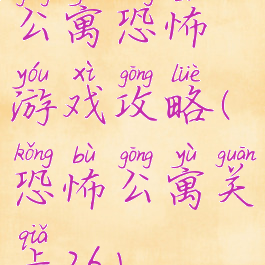 公寓恐怖
yóu xì gōng lüè
游戏攻略(
kǒng bù gōng yù guān
恐怖公寓关
qiǎ
卡26)